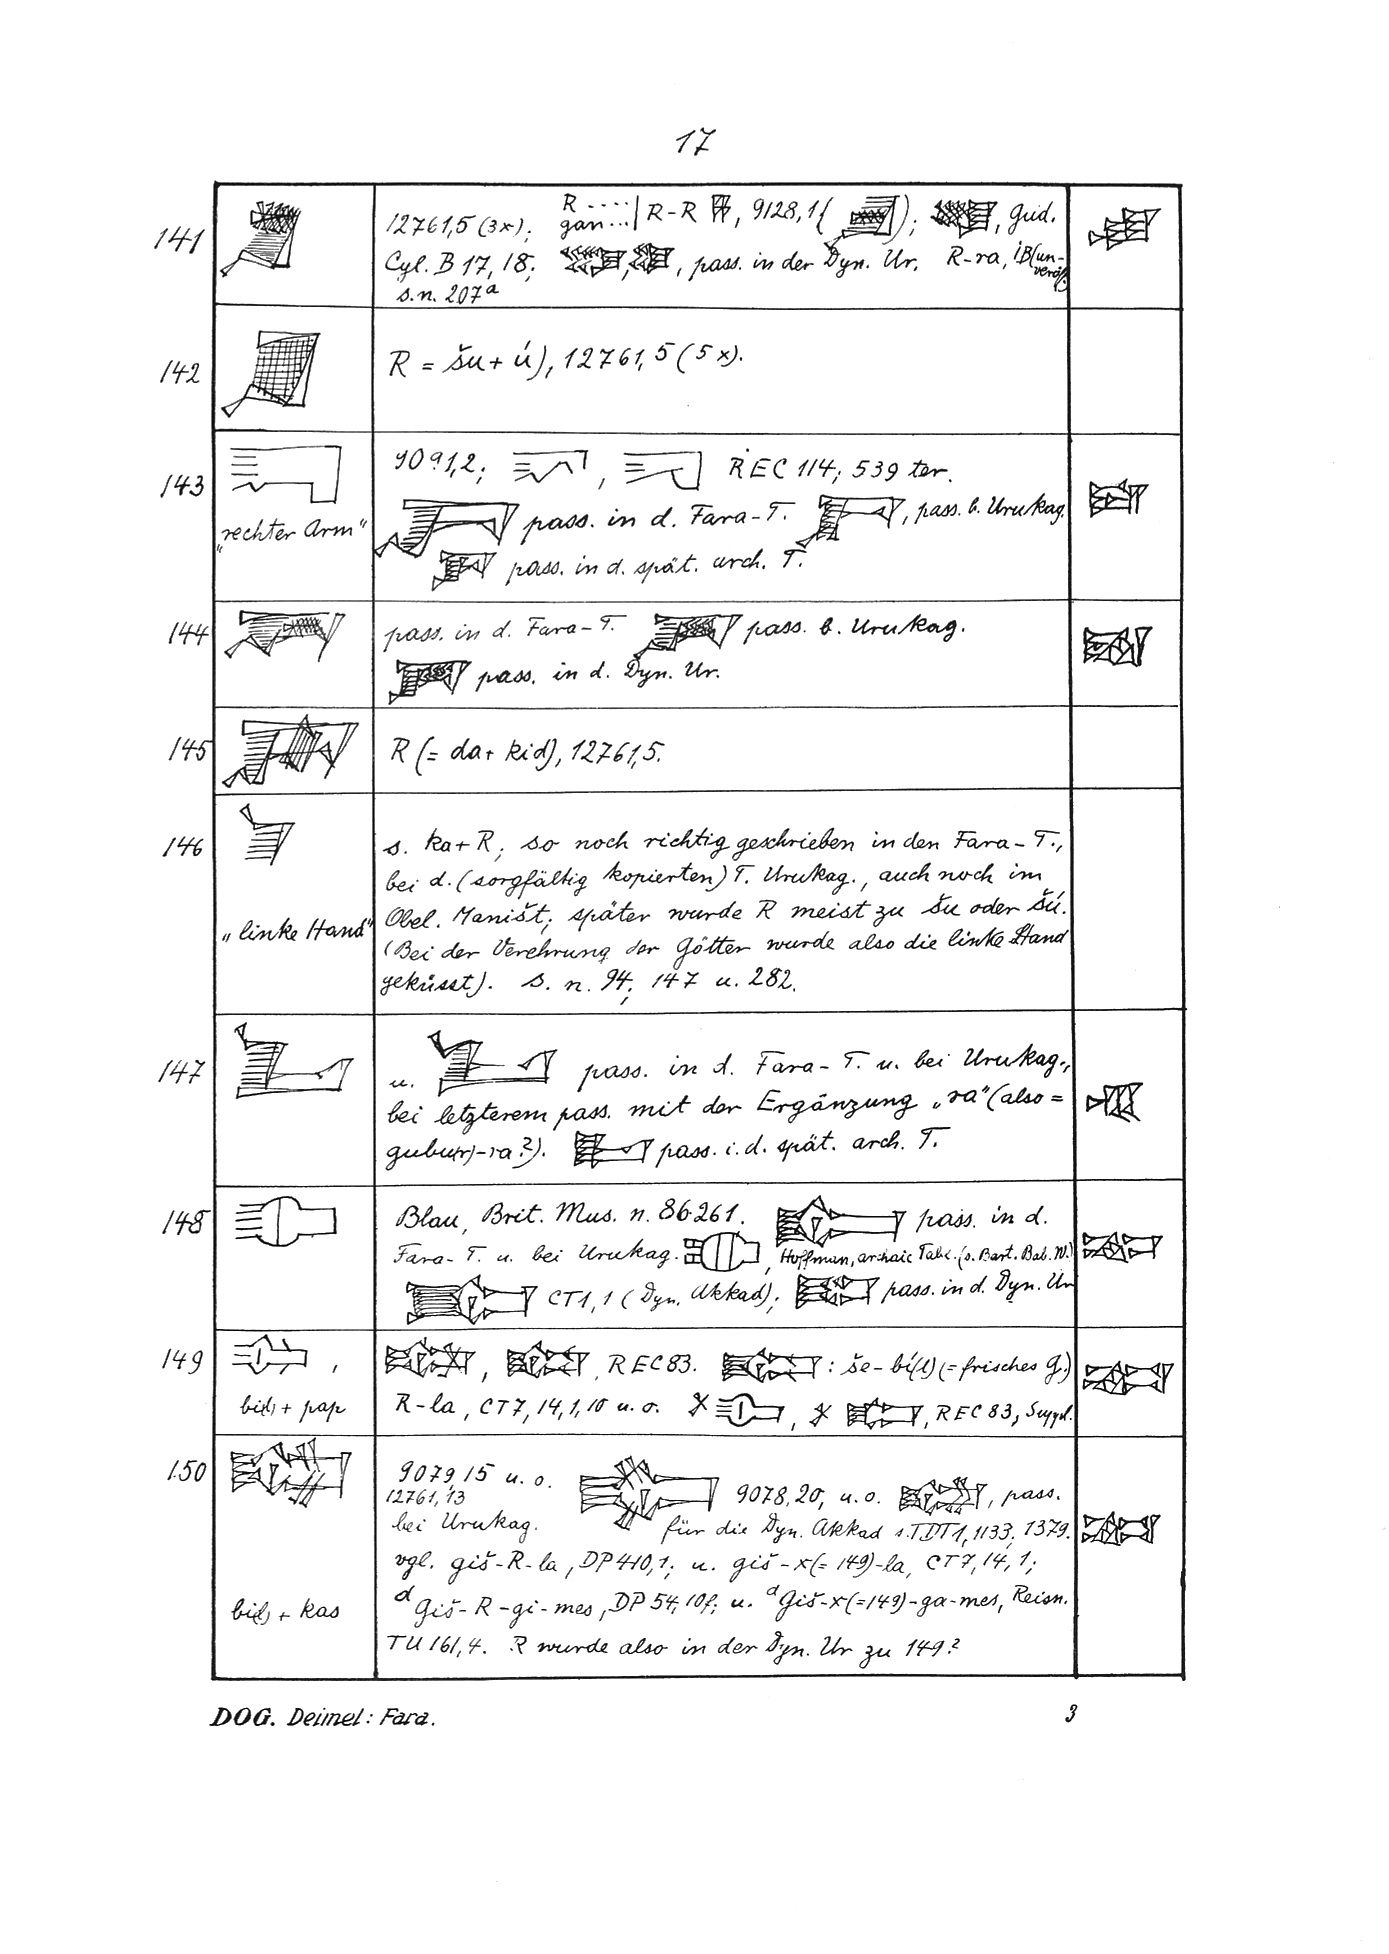 17
141
12761,5 (3x); R ···· | R-R , 9128,1 ( ); , Gud.
gan ···
Cyl. B 17, 18; , , pass. in der Dyn. Ur. R-ra, (un-
veröf.)
s. n. 207a
142
R = šu + ú), 12761,5 (5x).
143
9091,2; , REC 114; 539 ter.
"rechter Arm"
pass. in d. Fara-T. , pass. b. Urukag.
pass. in d. spät. arch. T.
144
pass. in d. Fara-T. pass. b. Urukag.
pass. in d. Dyn. Ur.
145
R (= da + kid), 12761,5.
146
s. ka + R; so noch richtig geschrieben in den Fara-T.,
bei d. (sorgfältig kopierten) T. Urukag., auch noch im
„linke Hand"
Obel. Maništ; später wurde R meist zu šu oder šú.
(Bei der Verehrung der Götter wurde also die linke Hand
geküsst). S. n. 94; 147 u. 282.
147
u. pass. in d. Fara-T. u. bei Urukag.,
bei letzterem pass. mit der Ergänzung „ra" (also =
gubu(r)-ra?). pass. i. d. spät. arch. T.
148
Blau, Brit. Mus. n. 86261. pass. in d.
Fara-T. u. bei Urukag. , Hoffman, archaic Tabl. (s. Bart. Bab. W.)
CT 1,1 (Dyn. Akkad); pass. in d. Dyn. Ur
149
, , REC 83. : še-bí(l) (= frisches g.)
bi(l) + pap
R-la, CT 7, 14, 1, 10 u. o. , , REC 83, Suppl.
150
9079,15 u. o. 9078,20, u. o. , pass.
12761,13
bei Urukag. für die Dyn. Akkad s. TDT 1, 1133; 1379.
vgl. giš-R-la, DP 410,1; u. giš-x(=149)-la, CT 7, 14, 1;
bi(l) + kas
d Giš-R-gi-mes, DP 54, 10f; u. d Giš-x(=149)-ga-mes, Reisn.
TU 161,4. R wurde also in der Dyn. Ur zu 149?
DOG. Deimel: Fara.
3